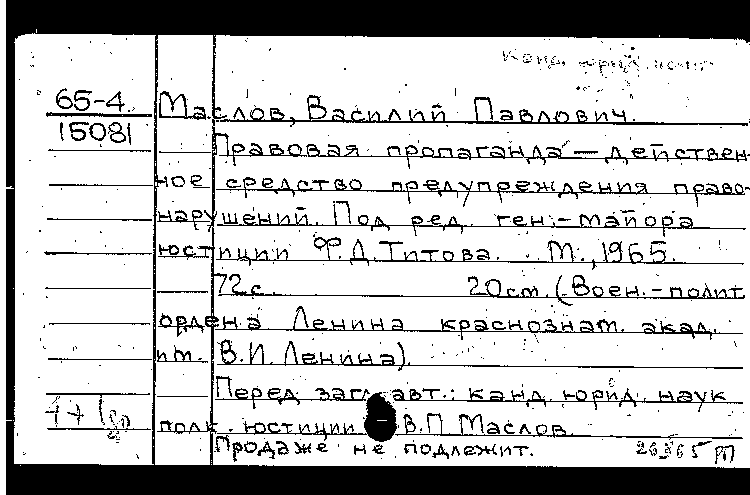 канд. юрид. наук
65-4 Маслов, Василий Павлович.
15081 Правовая пропаганда — действен-
ное средство предупреждения право-
нарушений. Под ред. ген.-майора
юстиции Ф.Д.Титова. М., 1965.
72с. 20см. (Воен.-полит.
ордена Ленина краснознам. акад.
им. В.И.Ленина).
Перед загл. авт.: канд. юрид. наук
полк. юстиции В.П.Маслов.
Продаже не подлежит.